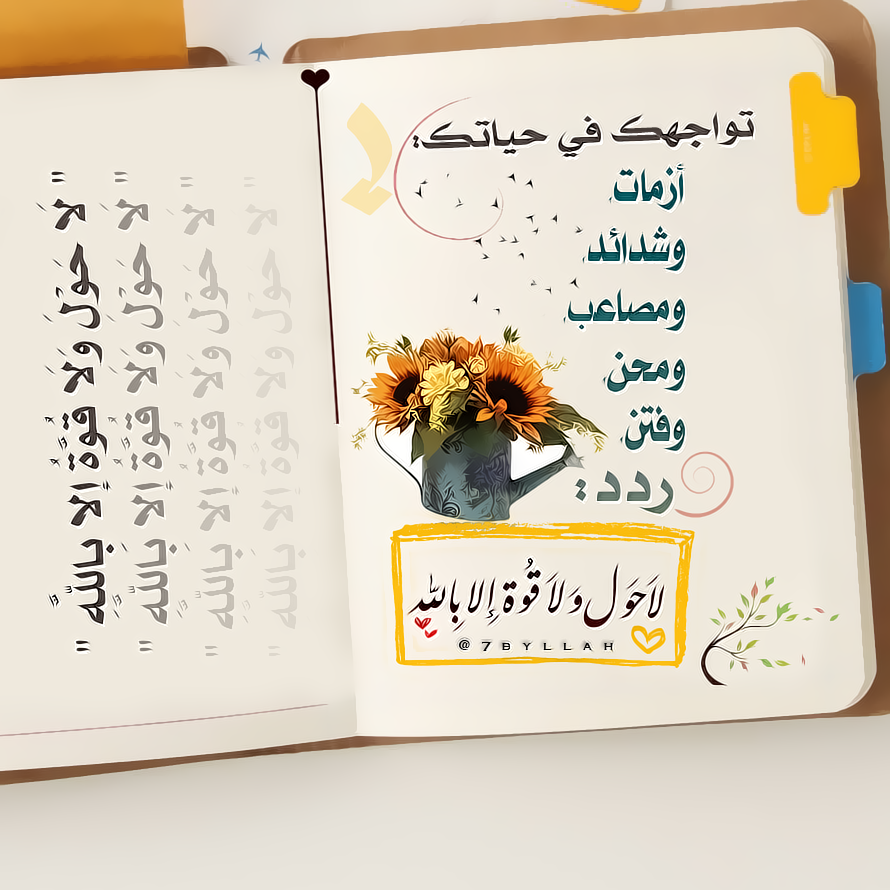 تواجهك في حياتك:
أزمات
وشدائد
ومصاعب
ومحن
وفتن
ردد:
لاَحَوَل وَلاَ قُوة إِلا بِاللهِ
@7BYLLAH
" لَا حَولَ وَلَا قُوَّةَ إِلا بِاللَّه "
" لَا حَولَ وَلَا قُوَّةَ إِلا بِاللَّه "
" لَا حَولَ وَلَا قُوَّةَ إِلا بِاللَّه "
" لَا حَولَ وَلَا قُوَّةَ إِلا بِاللَّه "